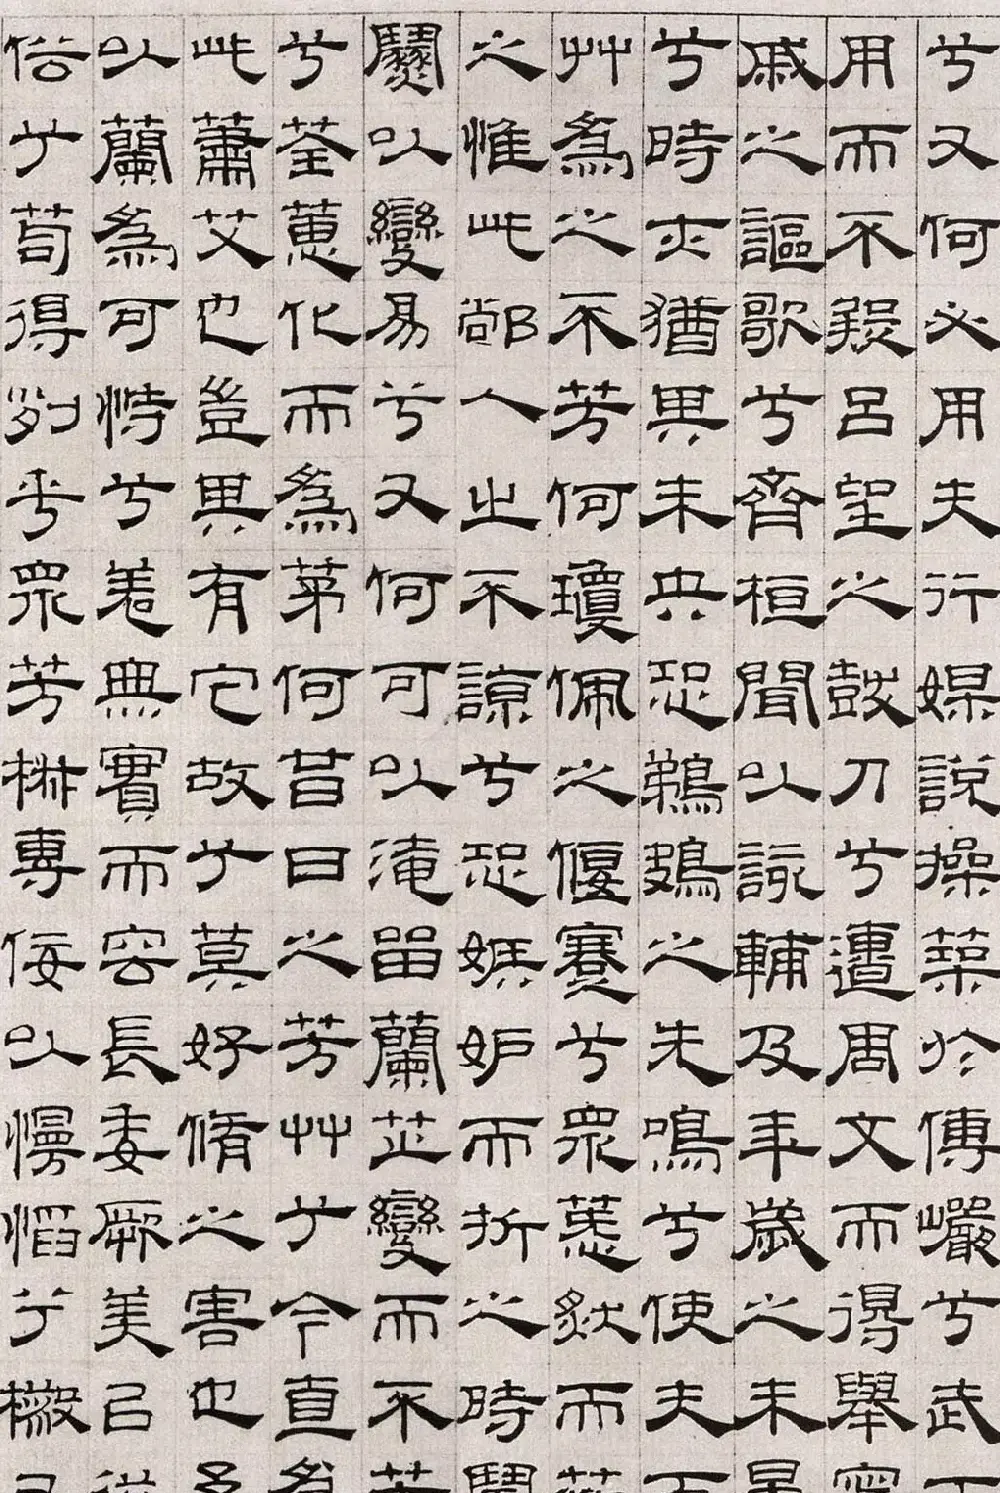 兮又何必用夫行媒說操築於傅巖兮武丁
用而不疑呂望之鼓刀兮遭周文而得舉甯
戚之謳歌兮齊桓聞以該輔及年歲之未晏
兮時亦猶其未央恐鵜鴂之先鳴兮使夫百
艸為之不芳何瓊佩之偃蹇兮眾薆然而薆
之惟此鄙人之不諒兮恐嫉妒而折之時
以變易兮又何可以淹留蘭芷變而不芳
兮荃蕙化而為茅何昔日之芳艸兮今直為
此蕭艾也豈其有它故兮莫好脩之害也予
以蘭為可恃兮羌無實而容長委厥美以從
俗兮苟得列乎眾芳椒專佞以慢慆兮樧